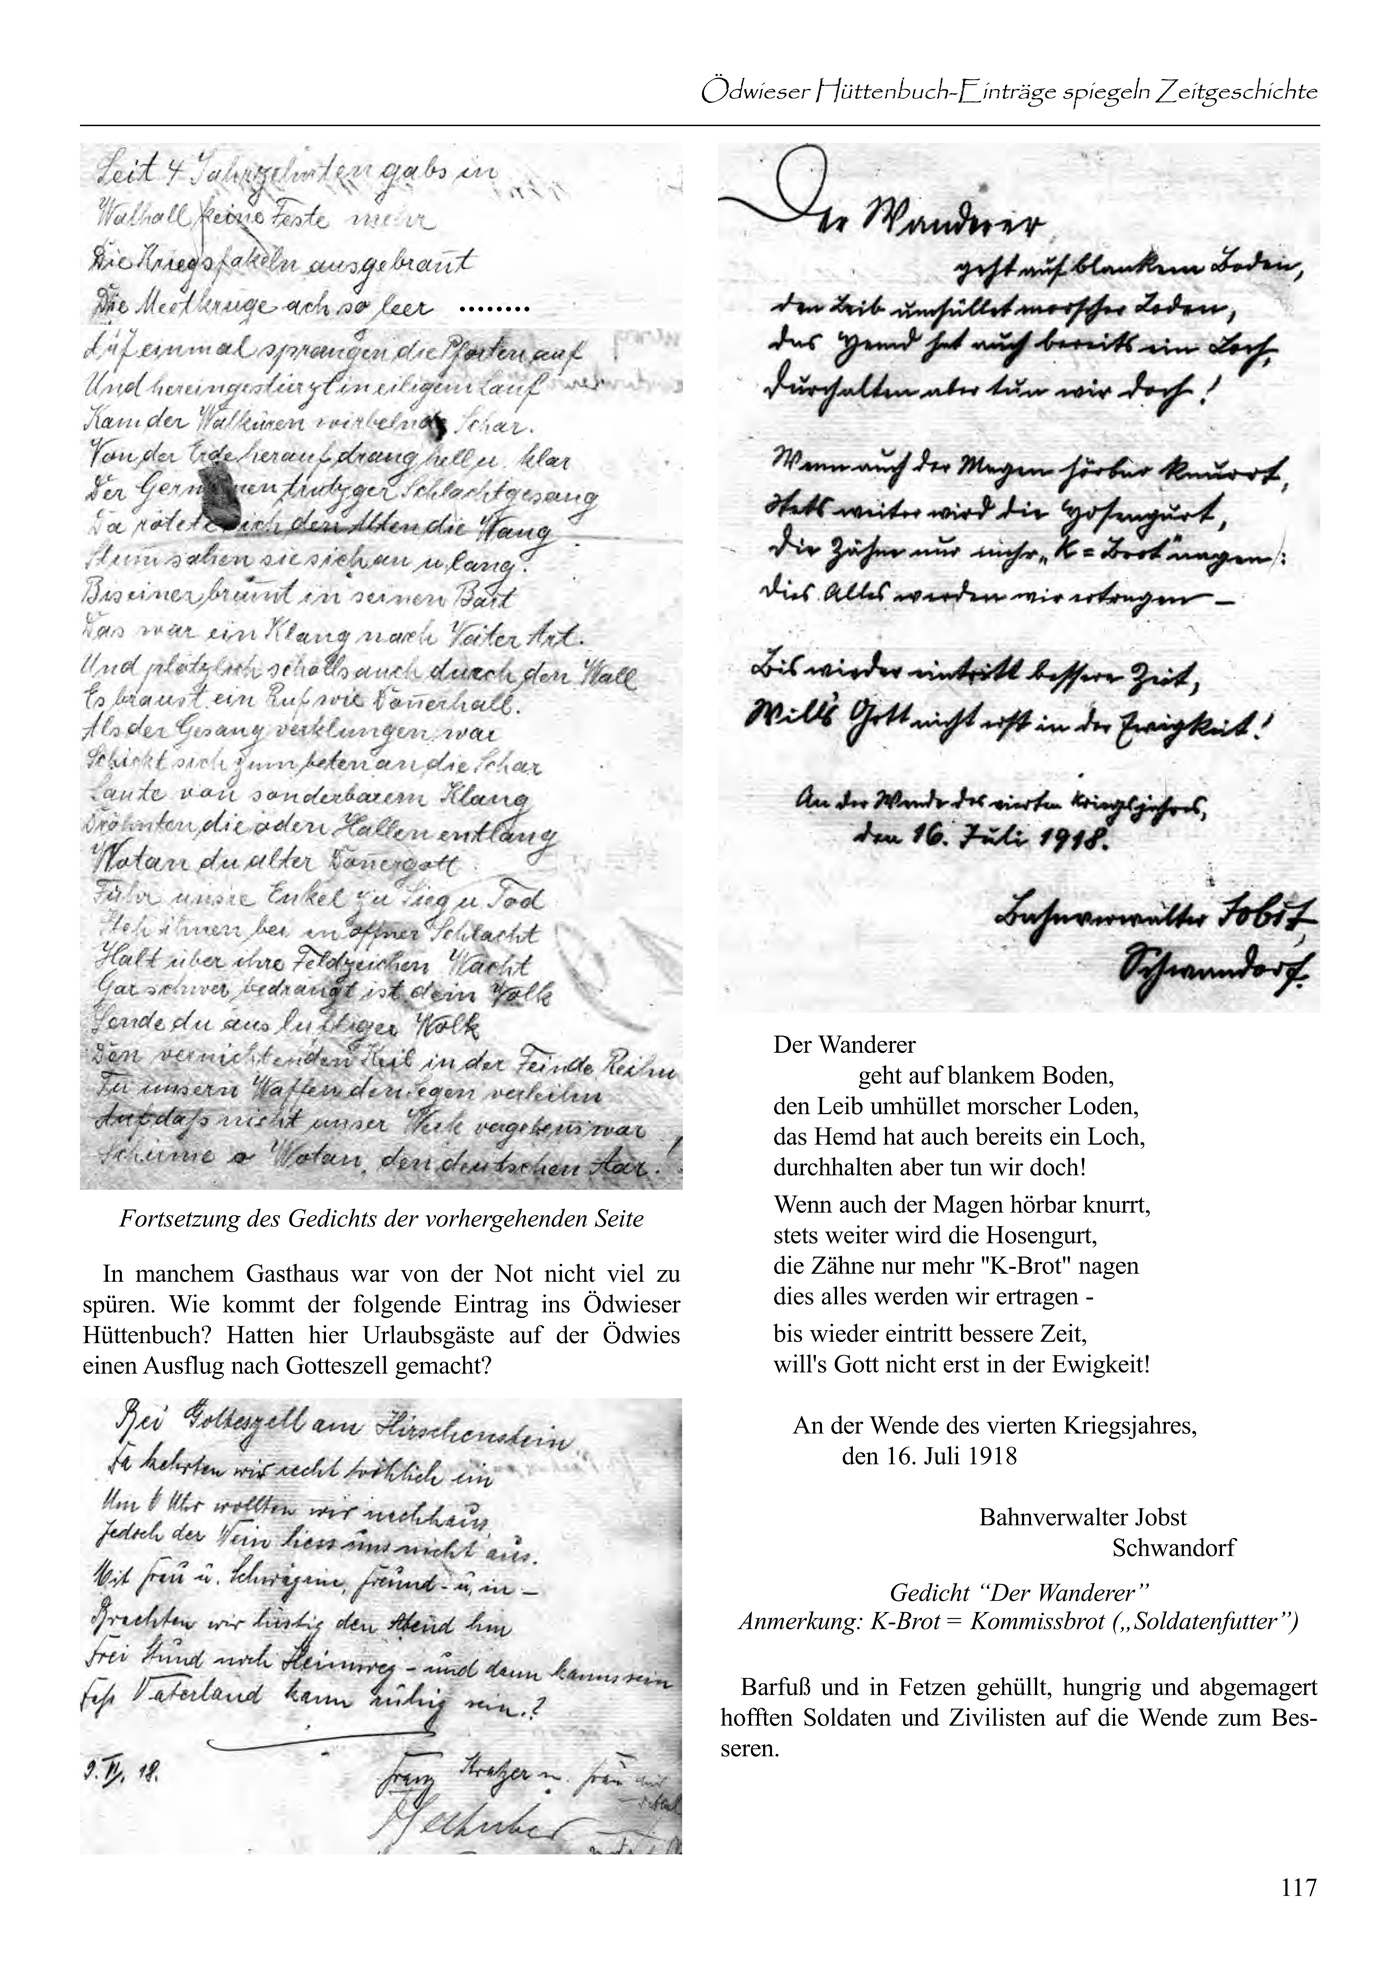 Ödwieser Hüttenbuch-Einträge spiegeln Zeitgeschichte
Seit 4 Jahrzehnten gabs in
Walhall keine Feste mehr
Die Kriegsfakeln ausgebrañt
Die Meetkruge ach so leer ........
Auf einmal sprangen die Pforten auf
Und hereingestürzt in eiligem Lauf
Kam der Walküren wirbelnde Schar.
Von der Erde herauf drang hell u. klar
Der Germanen trutzger Schlachtgesang
Da rötete sich den Alten die Wang
Stum̄ sahen sie sich an u. lang.
Bis einer brum̄t in seinen Bart
Das war ein Klang nach Väter Art.
Und plötzlich scholls auch durch den Wall
Es braust ein Ruf wie Don̄erhall.
Als der Gesang verklungen war
Schickt sich zum beten an die Schar
Laute von sonderbarem Klang
Dröhnten die öden Hallen entlang
Wotan du alter Don̄ergott
Führ unsre Enkel zu Sieg u Tod
Steh ihnen bei in offner Schlacht
Halt über ihre Feldzeichen Wacht
Gar schwer bedrängt ist dein Volk
Sende du aus luftiger Wolk
Den vernichtenden Keil in der Feinde Reihn
Tu unsern Waffen den Segen verleihn
Auf daß nicht unser Werk vergebens war
Schirme o Wotan, den deutschen Aar!
Fortsetzung des Gedichts der vorhergehenden Seite
In manchem Gasthaus war von der Not nicht viel zu
spüren. Wie kommt der folgende Eintrag ins Ödwieser
Hüttenbuch? Hatten hier Urlaubsgäste auf der Ödwies
einen Ausflug nach Gotteszell gemacht?
Bei Gotteszell am Hirschenstein
Da kehrten wir recht fröhlich ein
Um 6 Uhr wollten wir nachhaus,
Jedoch der Wein liess uns nicht aus.
Mit Frau u. Schwägerin, Freund- u. in –
Brachten wir lustig den Abend hin
Drei Stund noch Heimweg – und dann kanns sein
Lieb Vaterland kann ruhig sein.?
9. VI. 18.
Franz u. Frau
Der Wanderer
geht auf blankem Boden,
den Leib umhüllet morscher Loden,
das Hemd hat auch bereits ein Loch,
durchhalten aber tun wir doch!
Wenn auch der Magen hörbar knurrt,
stets weiter wird die Hosengurt,
die Zähne nur mehr „K=Brot" nagen:
dies Alles werden wir ertragen –
Bis wieder eintritt bessere Zeit,
Will's Gott nicht erst in der Ewigkeit!
An der Wende des vierten Kriegsjahres,
den 16. Juli 1918.
Bahnverwalter Jobst,
Schwandorf.
Der Wanderer
geht auf blankem Boden,
den Leib umhüllet morscher Loden,
das Hemd hat auch bereits ein Loch,
durchhalten aber tun wir doch!
Wenn auch der Magen hörbar knurrt,
stets weiter wird die Hosengurt,
die Zähne nur mehr "K-Brot" nagen
dies alles werden wir ertragen -
bis wieder eintritt bessere Zeit,
will's Gott nicht erst in der Ewigkeit!
An der Wende des vierten Kriegsjahres,
den 16. Juli 1918
Bahnverwalter Jobst
Schwandorf
Gedicht “Der Wanderer”
Anmerkung: K-Brot = Kommissbrot („Soldatenfutter”)
Barfuß und in Fetzen gehüllt, hungrig und abgemagert
hofften Soldaten und Zivilisten auf die Wende zum Bes-
seren.
117